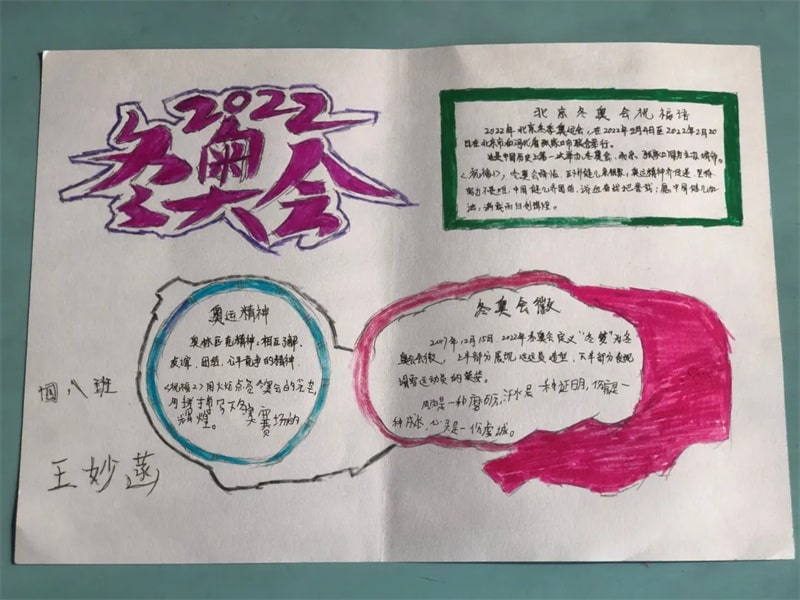 2022
冬奥会
北京冬奥会祝福语
2022年北京冬季奥运会,在2022年2月4日至2022年2月20
日在北京市和河北省张家口市联合举行。
这是中国历史上第一次举办冬奥会,北京、张家口同为主办城市。
《祝福1》,冬奥会传活,五洲健儿来相聚;奥运精神齐传递,坚持
努力不是,中国健儿齐团结,浴血奋战把誉载;愿中国健儿加
油,济再创辉煌。
奥运精神
奥林匹克精神,相互了解、
友谊、团结、公平竞争的精神
《祝福2》用火炬点冬奥会的光芒,
用拼搏写下冬奥赛场的
辉煌。
冬奥会徽
2017年12月15日,2022年冬奥会定义“冬梦”为冬
奥会会徽,上半部分展现运动员造型,下半部分表现
滑雪运动员的英姿。
风雨是一种磨历,汗水是一种证明,伤痕是一
种,心灵是一份虔诚。
四八班
王妙菡